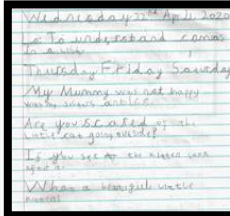 Wednesday 22nd April 2020
To understand commas
in a list.
Thursday Friday Saturday
My Mummy was not happy
Are you scared of the
little cat going outside?
If you see the kitten
What a beautiful little
kitten!